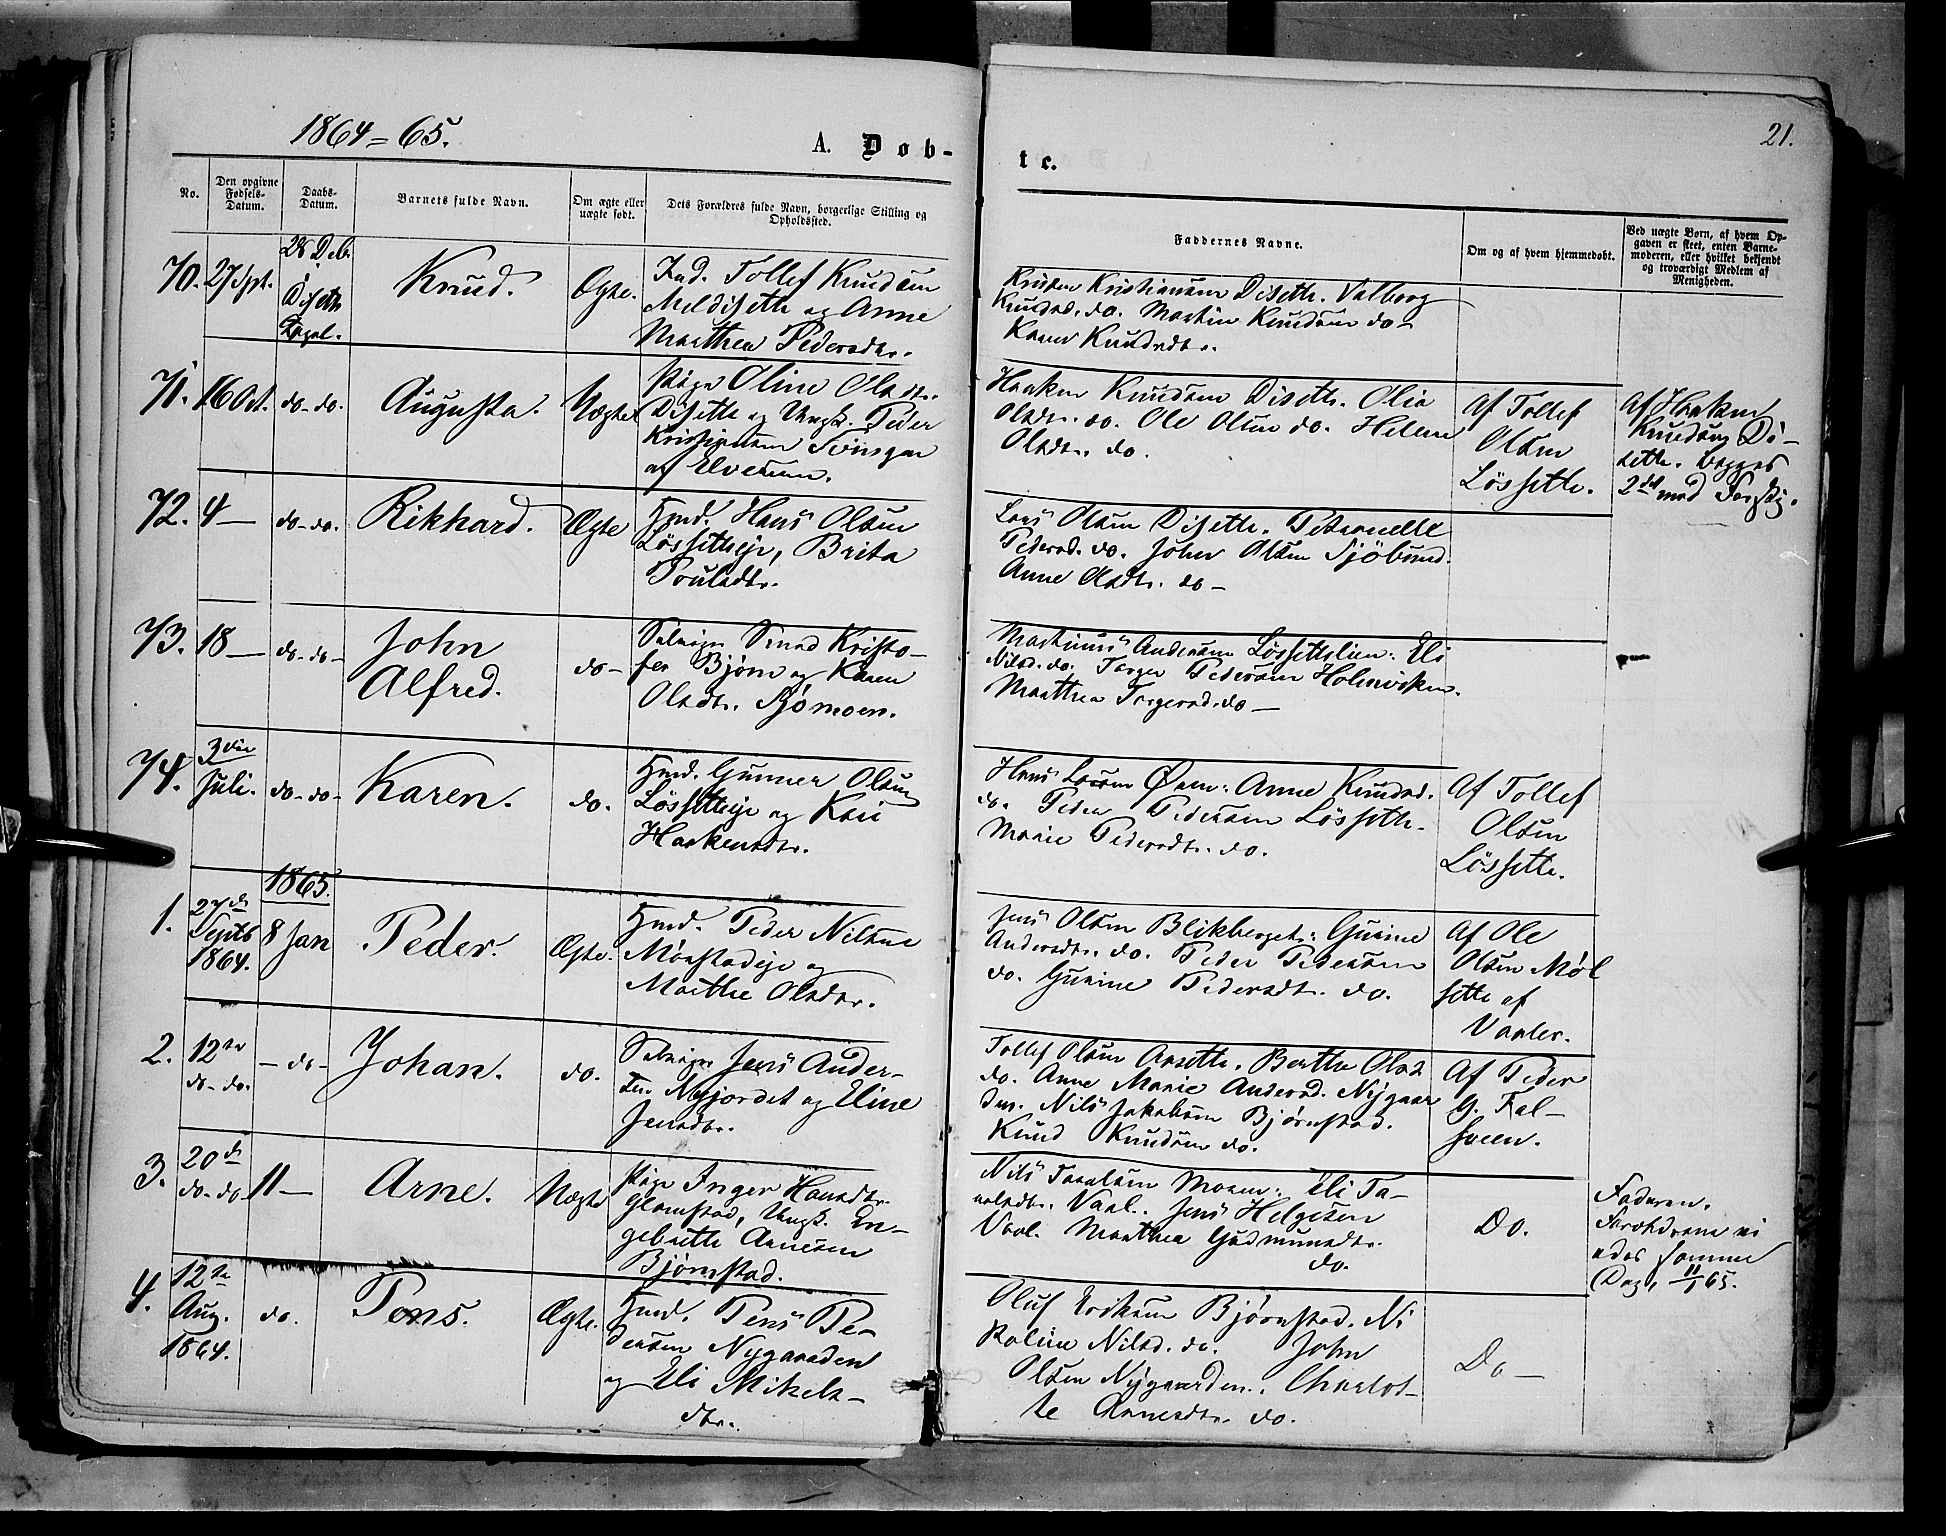 1864=65.
A. Døb-
te.
21.
No.
Den opgivne Fødsels-Datum.
Daabs-Datum.
Barnets fulde Navn.
Om ægte eller uægte født.
Dets Forældres fulde Navn, borgerlige Stilling og Opholdssted.
Faddernes Navne.
Om og af hvem hjemmedøbt.
Ved uægte Børn, af hvem Op-
gaven er skeet, enten Barne-
moderen, eller hvilket bekjendt
og troværdigt Medlem af
Menigheden.
70. 27 Spt. 28 Deb. i
Diseth
Kapel.
Knud.
Ægte.
Ind. Tollef Knudsen
Meldiseth og Anne
Marthea Pedersdtr.
Kristiansen Diseth. Valborg
Knudsd. do. Martin Knudsen do-
Karen Knudsdtr.
71. 16 Oct. do-do.
Augusta.
Uægte
Pige Oline Olsdtr.
Diseth og Ungk. Peder
Kristiansen
af Elverum.
Haaken Knudsen Diseth. Olia
Olsdtr. do. Ole Olsen do. Helene
Olsdtr. do.
Af Tollef
Olsen
Løssette.
Af Haaken
Knudsen Di-
seth. Begges
2det med
72. 4 — do-do.
Rikhard.
Ægte
Hmd. Hans Olsen
Løsseteje, Brita
Poulsdtr.
Lars Olsen Diseth. Peternelle
Pedersd. do. John Olsen Sjøbund.
Anne Olsdtr. do-
73. 18 — do-do-
John
Alfred.
do-
Selveier Smed Kristo-
fer Bjørn og Karen
Olsdtr. Sjømoen.
Martinus Andersen Løssetlien. Eli
Nilsd. do. Torger Pedersen Holmviken.
Marthea Torgersd. do —
74. 3die
Juli. do-do-
Karen.
do.
Hmd. Gunner Olsen
Løsseteje og Kari
Haakensdtr.
Hans Larsen Øien. Anne Knudsd.
do. Peder Pedersen Løssette.
Marie Pedersdtr. do.
Af Tollef
Olsen
Løssette.
1865.
1. 27de
Septb
1864. 8 Jan
Peder.
Ægte.
Hmd. Peder Nilsen
Mørstadeje og
Marthe Olsdtr.
Jens Olsen Blikberget. Gunine
Andersdtr. do. Peder Pedersen
do. Gunine Pedersdtr. do.
Af Ole
Olsen Møl
sette af
Vaaler.
2. 12te
do-do. - do-
Johan.
do.
Selveier Jens Ander-
sen Nyjordet og Eline
Jensdtr.
Tollef Olsen Arsette. Berthe Olsd
do. Anne Marie Andersd. Nygaar
den. Nils Jakobsen Bjørnstad.
Knud Knudsen do.
Af Peder
G. Fal-
sveen.
3. 20de
do-do- 11-
Arne.
Uægte
Pige Inger Hansdtr.
Glomstad, Ungk. En-
gebrette Arnesen
Bjørnstad.
Nils Taralsen Moen. Eli Ta-
ralsdtr. Vaal. Jens Helgesen
Vaal. Marthea Gudmunsdtr.
do.
Do.
Faderen.
Forældrene vi
edes samme
Dag, 11/1 65.
4. 12te
Aug.
1864. do.
Pens.
Ægte.
Hmd. Pens Pe-
dersen Nygaarden
og Eli Mikels-
dtr.
Oluf Eriksen Bjørnstad. Ni
koline Nilsd. do. John
Olsen Nygaarden. Charlot-
te Arnesdtr. do.
Do —